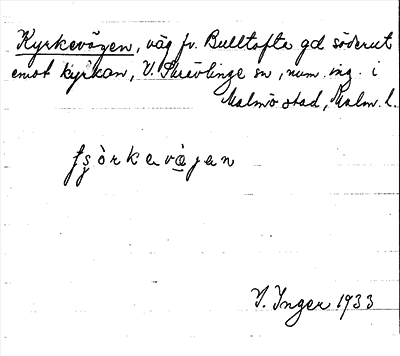 Kyrkevägen, väg fr. Bulltofta gd söderut
emot kyrkan, V. Skrävlinge sn, num. ing. i
Malmö stad, Malm. l.
fs̮òrkavä̱jan
V. Inger 1933